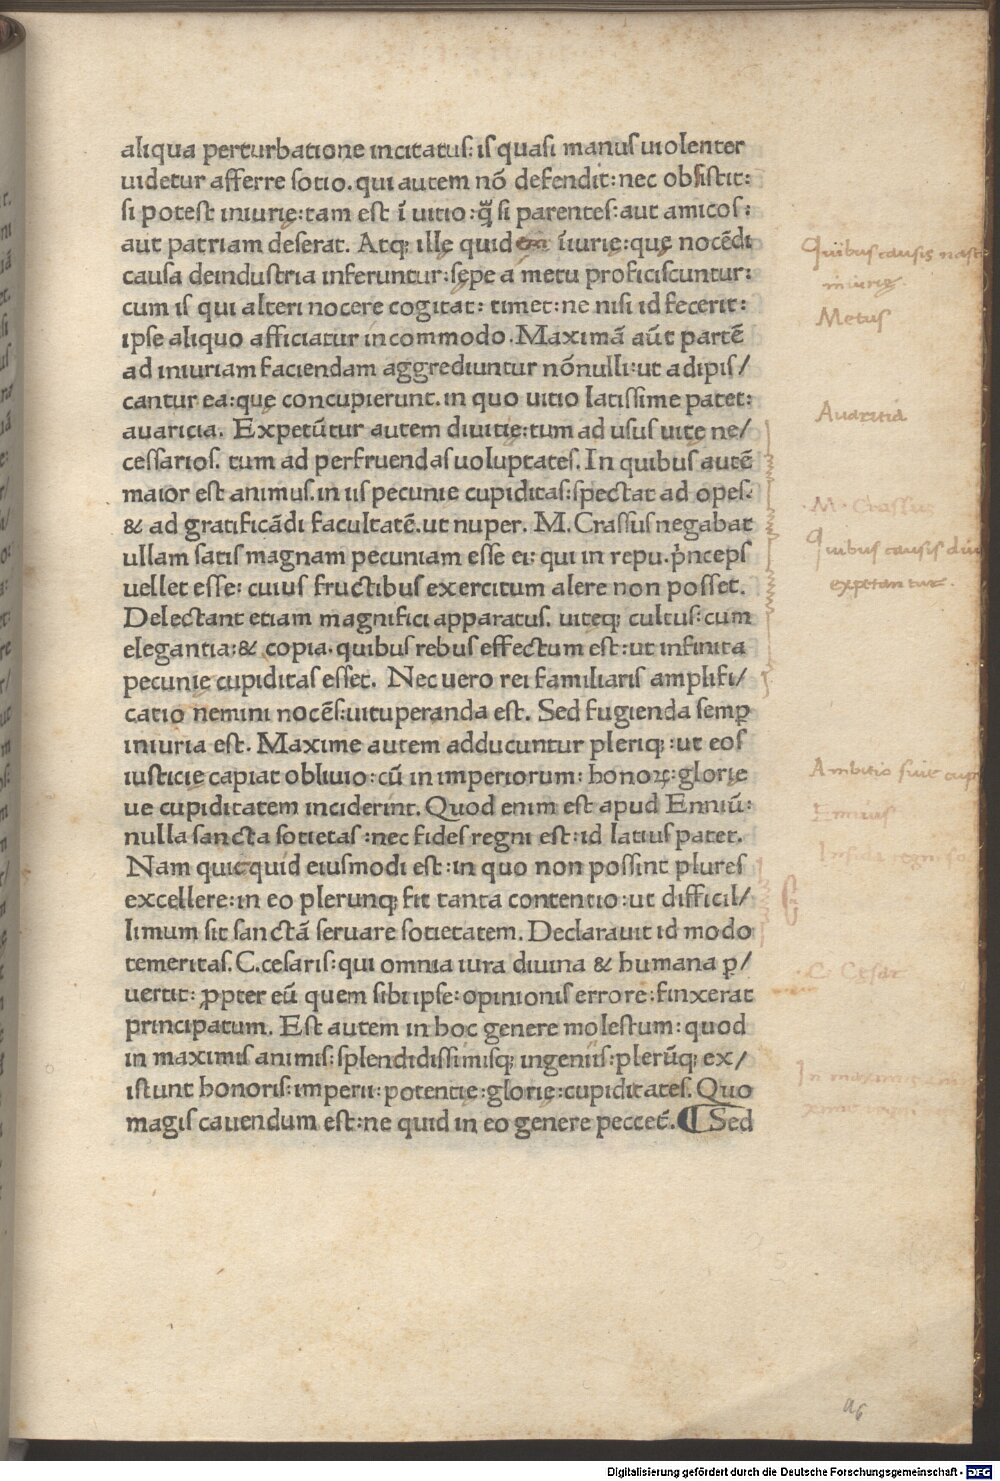 aliqua perturbatione incitatus: is quasi manus uiolenter
uidetur afferre sotio. qui autem nõ defendit: nec obsistit:
si potest iniurię: tam est ĩ uitio: q̃ si parentes: aut amicos:
aut patriam deserat. Atq; illę quidem ĩiurię: quę nocẽdi
causa deindustria inferuntur: sępe a metu proficiscuntur:
cum is qui alteri nocere cogitat: timet: ne nisi id fecerit:
ipse aliquo afficiatur incommodo. Maximã aũt partẽ
ad iniuriam faciendam aggrediuntur nõnulli: ut adipis/
cantur ea: quę concupierunt. in quo uitio latissime patet:
auaricia. Expetũtur autem diuitię: tum ad usus uitę ne/
cessarios. tum ad perfruendas uoluptates. In quibus autẽ
maior est animus. in iis pecunie cupiditas: spectat ad opes.
& ad gratificãdi facultatẽ. ut nuper. M. Crassus negabat
ullam satis magnam pecuniam esse ei: qui in repu. p̍nceps
uellet esse: cuius fructibus exercitum alere non posset.
Delectant etiam magnifici apparatus. uiteq; cultus: cum
elegantia: & copia. quibus rebus effectum est: ut infinita
pecunię cupiditas esset. Nec uero rei familiaris amplifi/
catio nemini nocẽs: uituperanda est. Sed fugienda semꝑ
iniuria est. Maxime autem adducuntur pleriq;: ut eos
iusticię capiat obliuio: cũ in imperiorum: honoꝝ: glorię
ue cupiditatem inciderint. Quod enim est apud Enniũ:
nulla sancta sotietas: nec fides regni est: id latius patet.
Nam quicquid eiusmodi est: in quo non possint plures
excellere: in eo plerunq; fit tanta contentio: ut difficil/
limum sit sanctã seruare sotietatem. Declarauit id modo
temeritas. C. cesaris: qui omnia iura diuina & humana ꝑ/
uertit: ꝓpter eũ quem sibi ipse: opinionis errore: finxerat
principatum. Est autem in hoc genere molestum: quod
in maximis animis: splendidissimisq; ingeniis: plerũq; ex/
istunt honoris: imperii: potentię: glorię: cupiditates. Quo
magis cauendum est: ne quid in eo genere peccet̃. ¶ Sed
Quibus causis nasc
iniurię.
Metus
Auaritia
M. Crassus
Quibus causis diui
expetantur.
Ambitio siue cup
Ennius
C. Cęsar
In maximis
a6
Digitalisierung gefördert durch die Deutsche Forschungsgemeinschaft - DFG